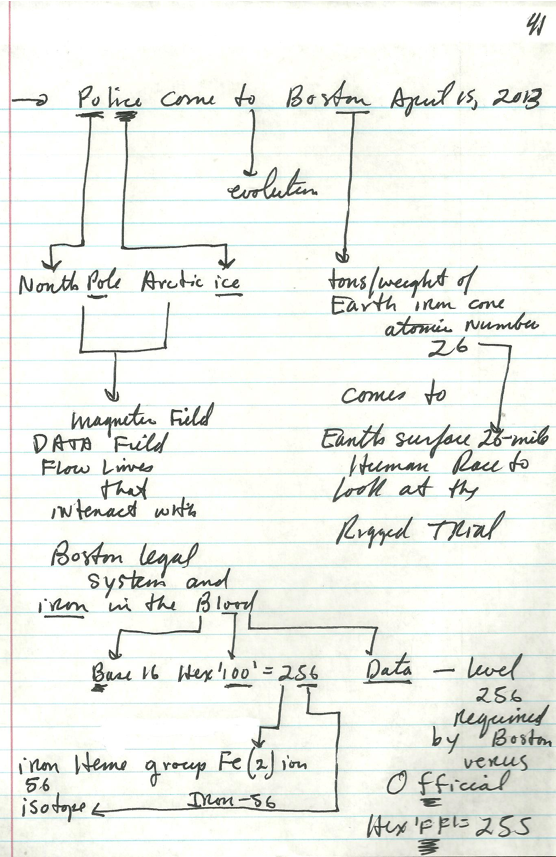 41
→ Police come to Boston April 15, 2013
evolution
North Pole Arctic ice
tons/weight of
Earth iron core
atomic number
26
comes to
Earth surface 26-mile
Human Race to
look at the
Rigged TRIAL
magnetic Field
DATA Field
Flow Lines
that
interact with
Boston legal
system and
iron in the Blood
Base 16 Hex '100' = 256 Data — level
256
required
by Boston
versus
Official
Hex 'FF' = 255
iron Heme group Fe(2) ion
56
isotope Iron-56